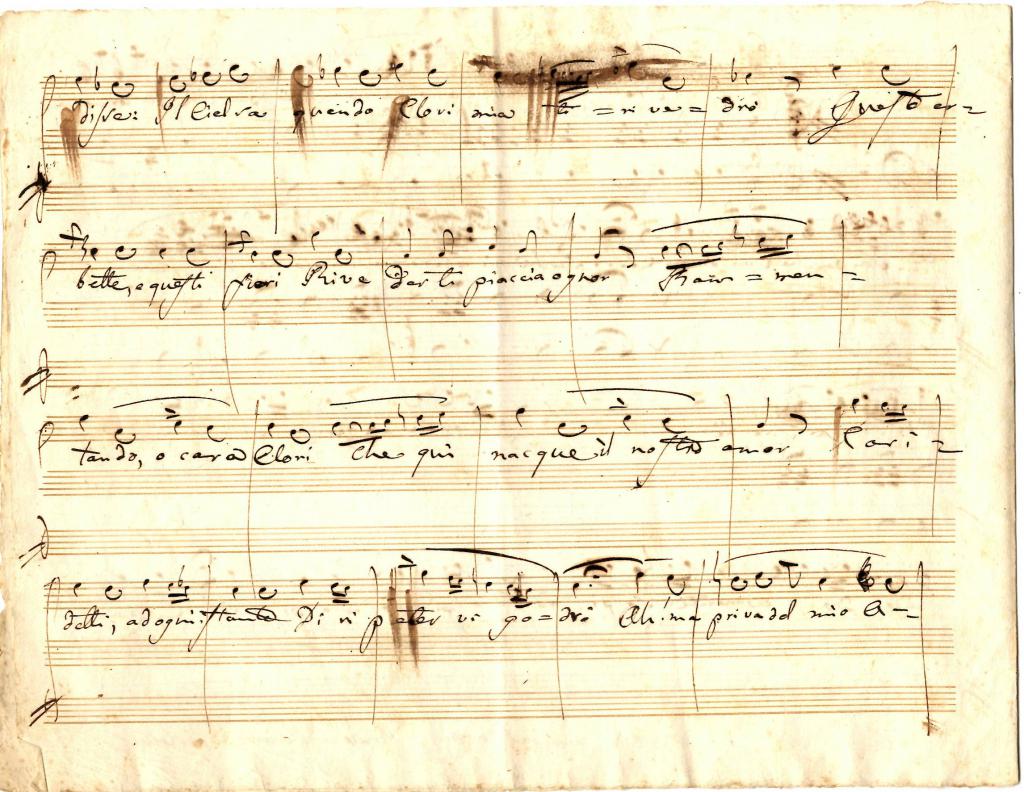 disse: Il Ciel sa quando Clori mia ti = ri ve = drò Quest' er =
bette, e questi fiori Rive dir ti piaccia ognor Ram = men =
tando, o cara Clori Che quì nacque il nostro amor Cari =
detti, ad ogni istante Di ri peter vi go = drò Ah! ma priva del mio A =